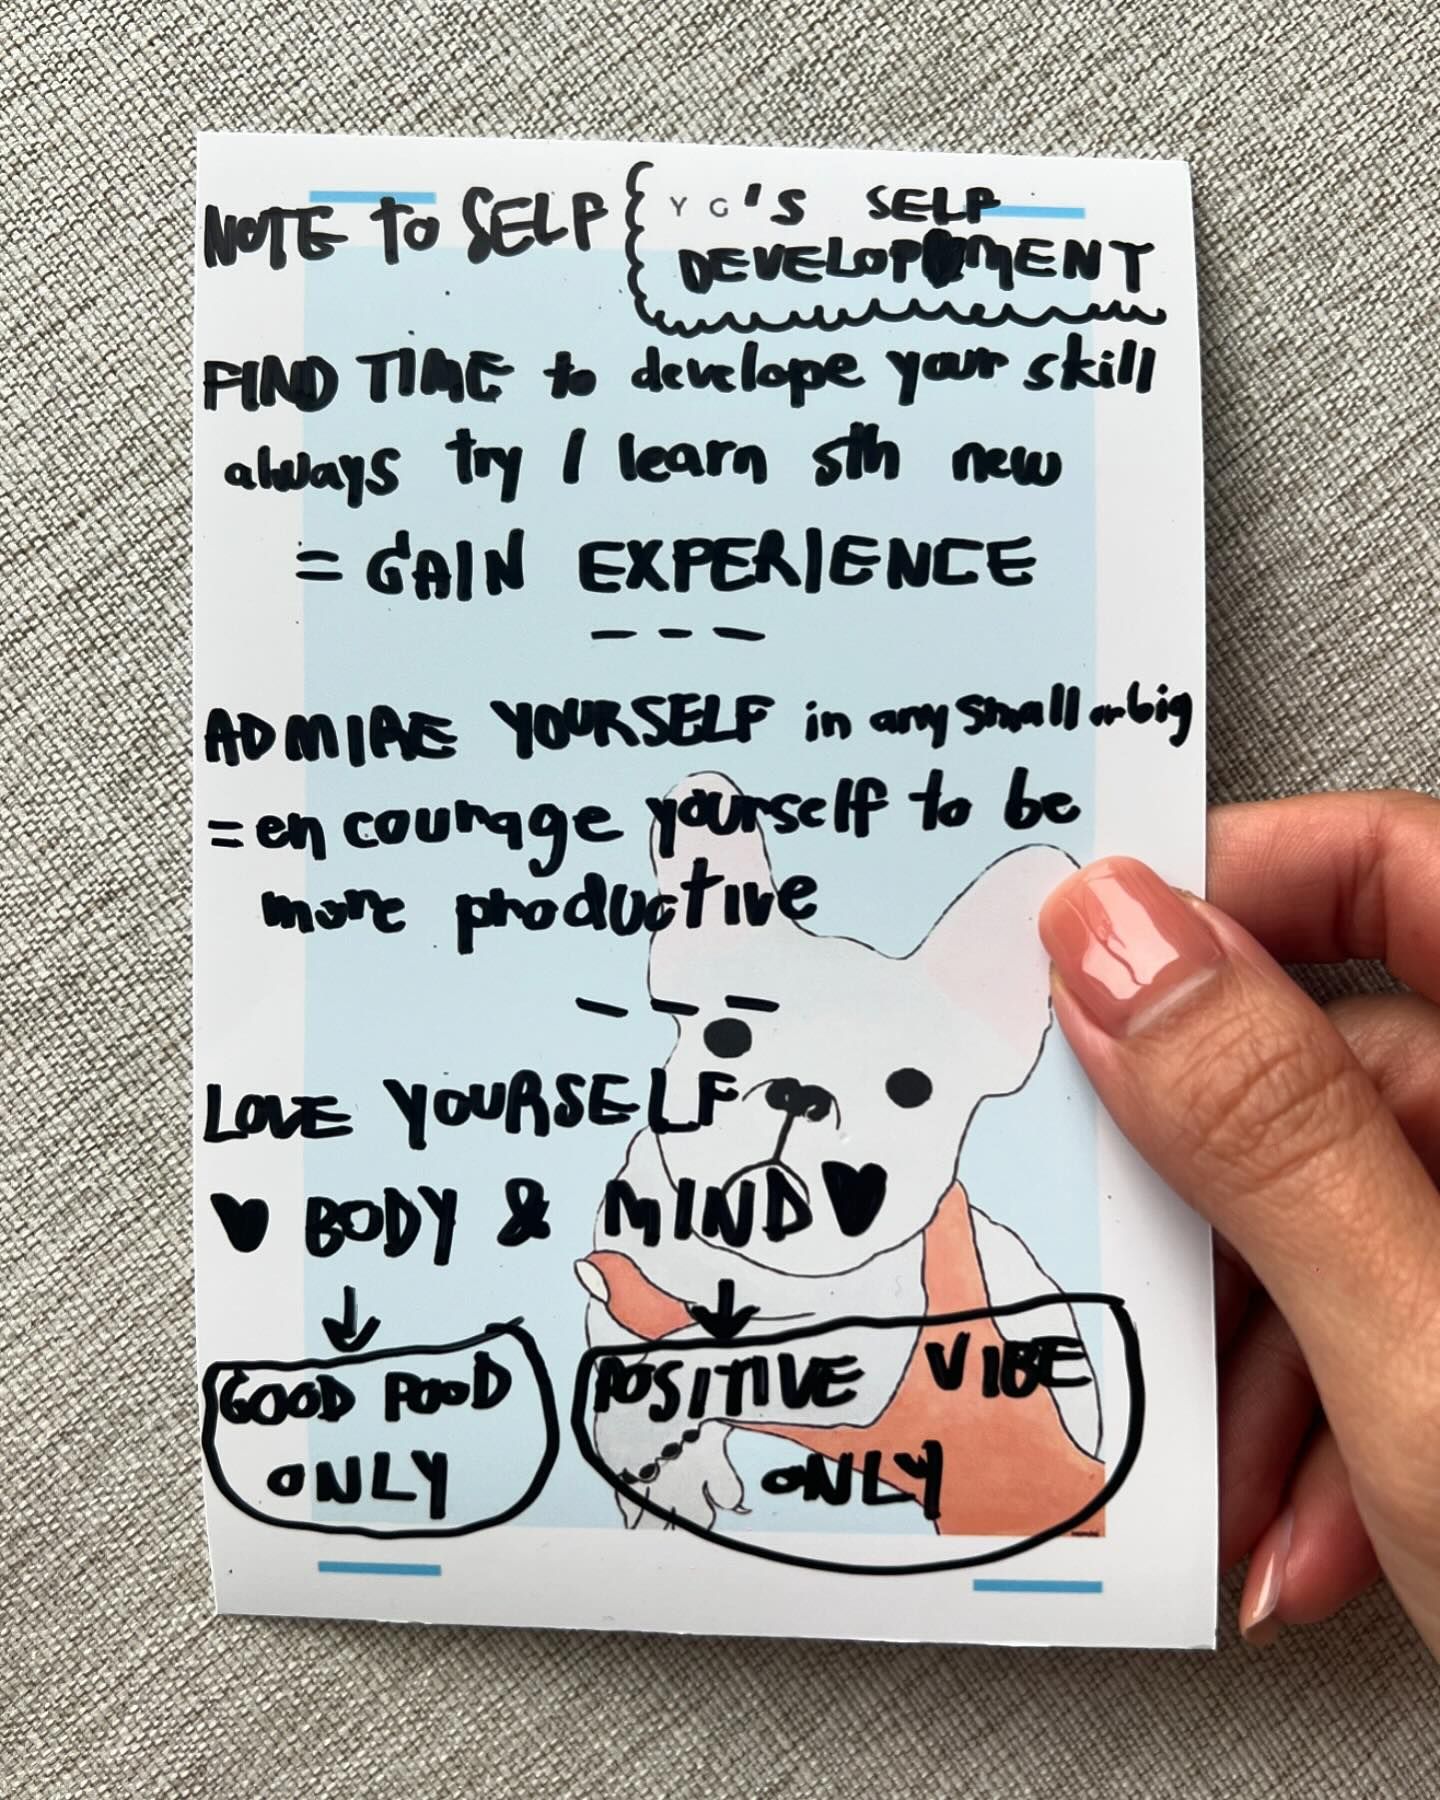 NOTE TO SELF
YG'S SELF
DEVELOPMENT
FIND TIME to develope your skill
always try / learn sth new
= GAIN EXPERIENCE
---
ADMIRE YOURSELF in any small or big
= encourage yourself to be
more productive
---
LOVE YOURSELF
♥ BODY & MIND ♥
↓ ↓
GOOD FOOD
ONLY
POSITIVE VIBE
ONLY